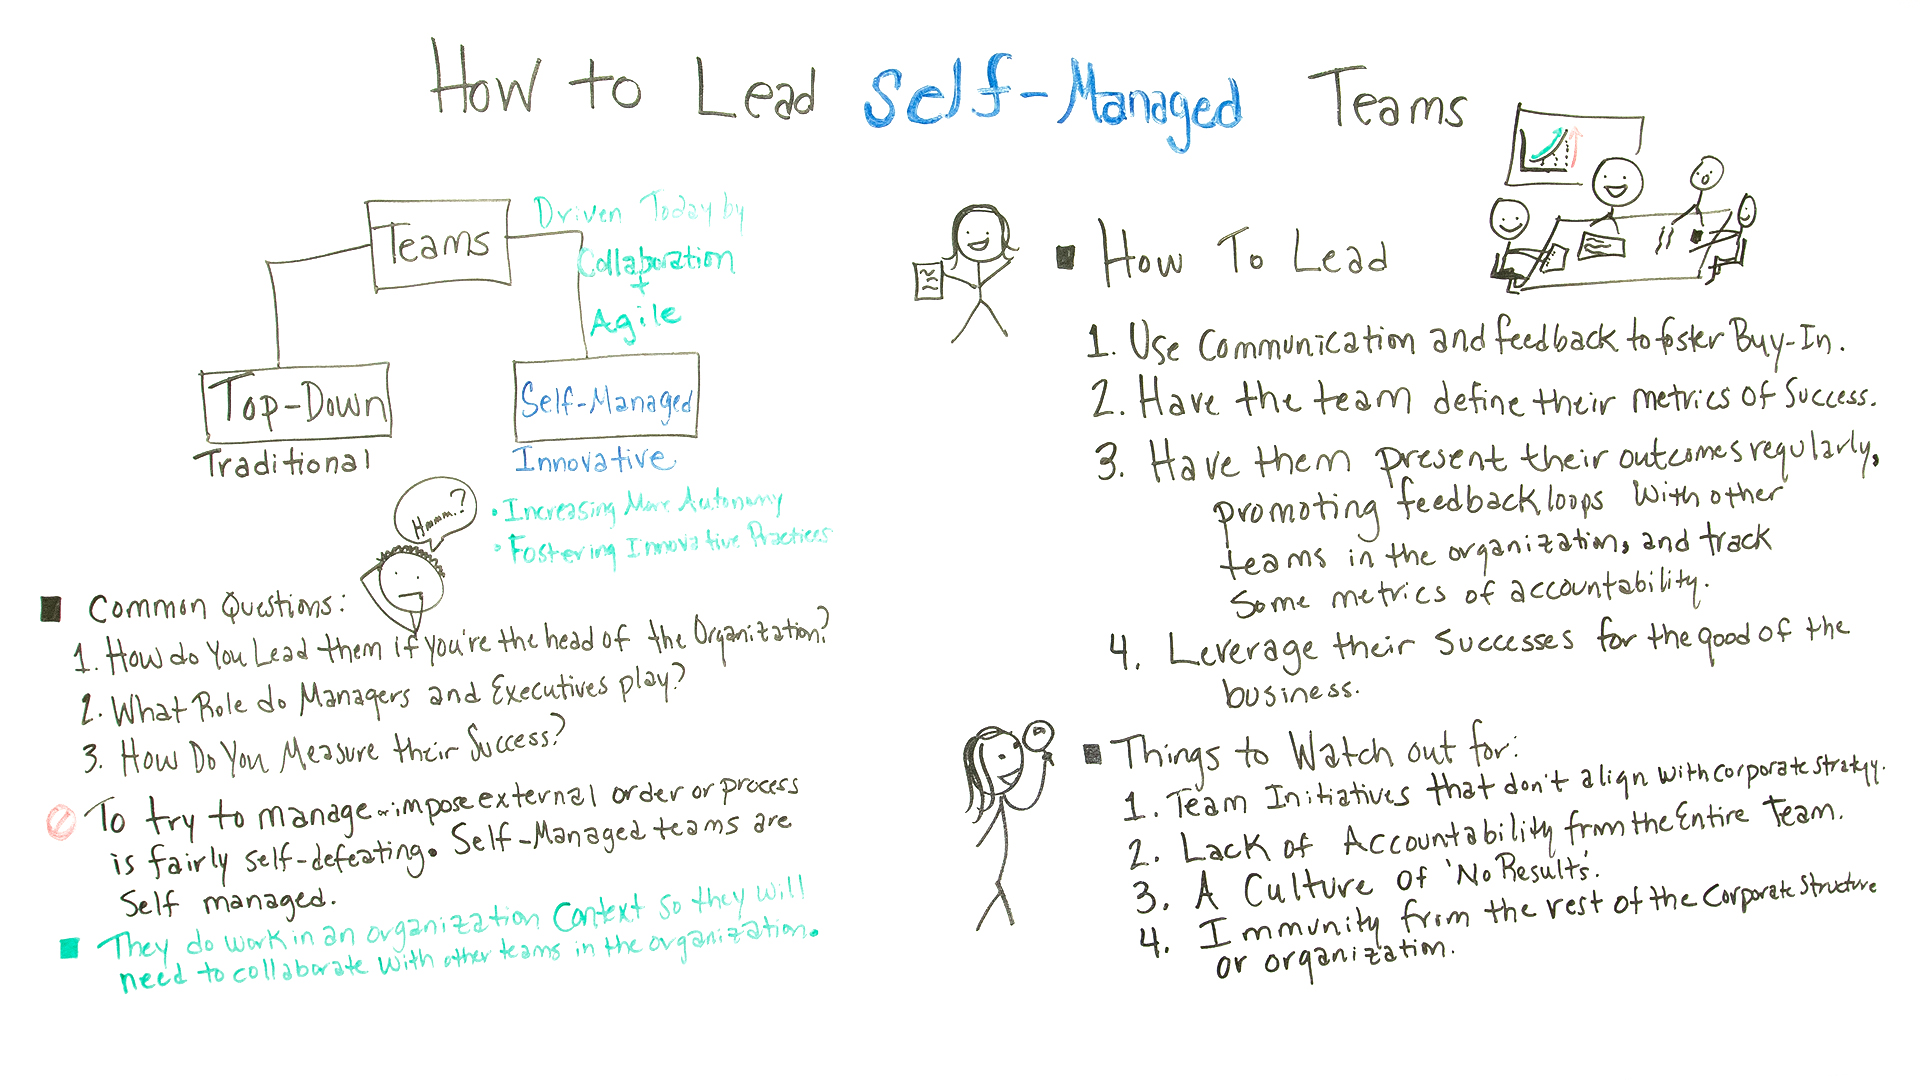 How to Lead Self-Managed Teams
Teams
Driven Today by
Collaboration
+
Agile
Top-Down
Traditional
Self-Managed
Innovative
• Increasing More Autonomy
• Fostering Innovative Practices
Hmmm.?
Common Questions:
1. How do You Lead them if you're the head of the Organization?
2. What Role do Managers and Executives play?
3. How Do You Measure their Success?
To try to manage or impose external order or process
is fairly self-defeating. Self-Managed teams are
Self managed.
They do work in an organization Context so they will
need to collaborate with other teams in the organization.
How To Lead
1. Use Communication and feedback to foster Buy-In.
2. Have the team define their metrics of Success.
3. Have them present their outcomes regularly,
promoting feedback loops with other
teams in the organization, and track
Some metrics of accountability.
4. Leverage their Successes for the good of the
business.
Things to Watch out for:
1. Team Initiatives that don't align with Corporate Strategy.
2. Lack of Accountability from the Entire Team.
3. A Culture of 'No Results'.
4. Immunity from the rest of the Corporate Structure
or organization.